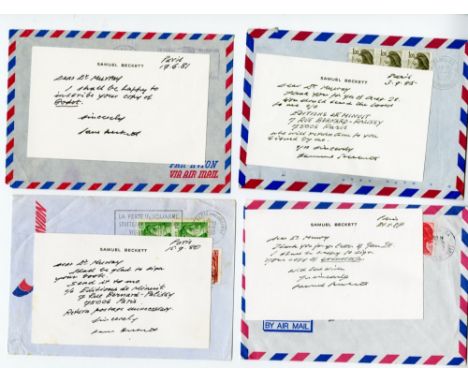 SAMUEL BECKETT
Paris
19.6.81
Dear Dr. Murray
I shall be happy to
inscribe your copy of
Godot.
Sincerely
Sam. Beckett
PAR AVION
VIA AIR MAIL
SAMUEL BECKETT
Paris
Dear Dr. Murray
Thank you for yours of
You should send the book
to me c/o
EDITIONS DE MINUIT
7 RUE BERNARD-PALISSY
75006 PARIS
who will return it to you
Sincerely
Samuel Beckett
LA POSTE
SAMUEL BECKETT
Paris
15.9.80
Dear Dr. Murray
Shall be glad to sign
your book.
Send it to me
c/o Editions de Minuit
7 Rue Bernard-Palissy
75006 Paris
Return postage unnecessary
Sincerely
Sam. Beckett
SAMUEL BECKETT
Paris
Dear Dr. Murray
Thank you for your letter of
I shall be happy to sign
your copy of
Sincerely
Samuel Beckett
BY AIR MAIL